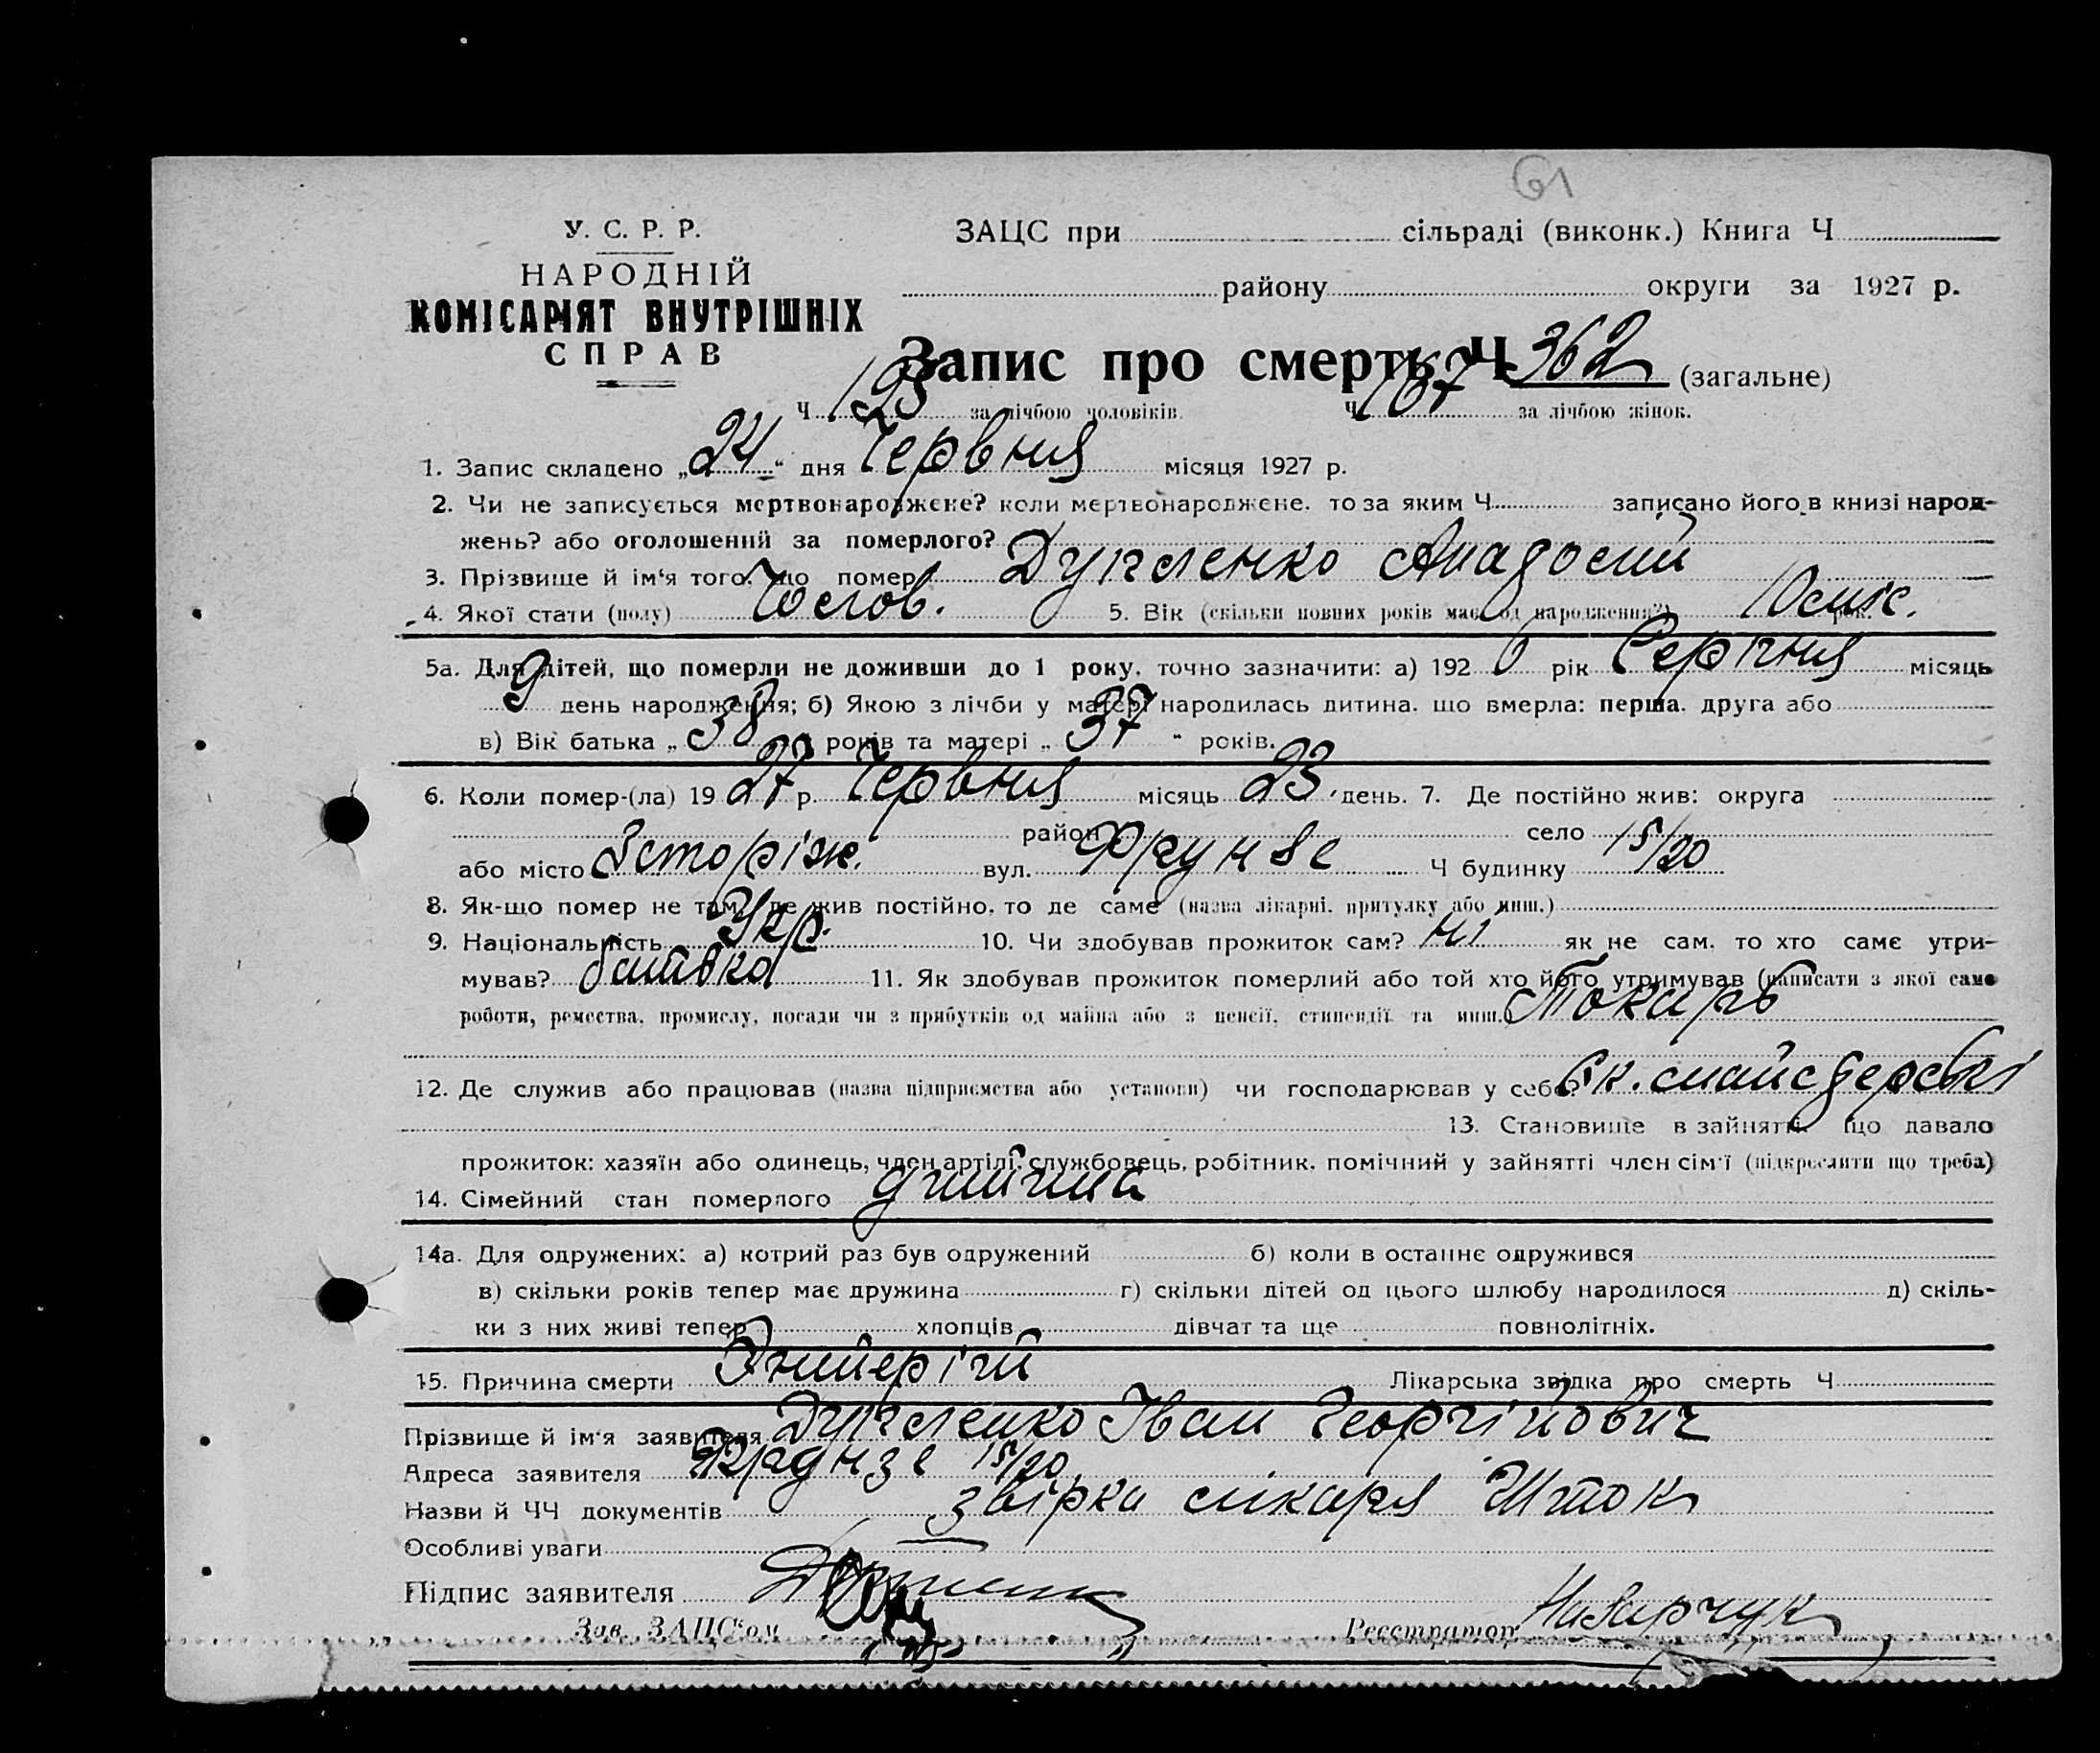 61
У. С. Р. Р.
НАРОДНІЙ
КОМІСАРІЯТ ВНУТРІШНІХ
СПРАВ
ЗАЦС при сільраді (виконк.) Книга Ч
району округи за 1927 р.
Запис про смерть Ч 362 (загальне)
Ч 195 за лічбою чоловіків. Ч 167 за лічбою жінок.
1. Запис складено „24“ дня Червня місяця 1927 р.
2. Чи не записується мертвонароджене? коли мертвонароджене, то за яким Ч записано його в книзі народ-
жень? або оголошений за померлого?
3. Прізвище й ім'я того, що помер
4. Якої стати (полу) Чолов. 5. Вік (скільки повних років має од народження?) 10 міс. рок.
5а. Для дітей, що померли не доживши до 1 року, точно зазначити: а) 1926 рік Серпня місяць
9 день народження; б) Якою з лічби у матері народилась дитина, що вмерла: перша, друга або
в) Вік батька „38“ років та матері „37“ років.
6. Коли помер-(ла) 1927 р. Червня місяць 23. день. 7. Де постійно жив: округа
район село
або місто Запоріж. вул. Фрунзе Ч будинку 15/20
8. Як-що помер не там, де жив постійно, то де саме (назва лікарні, притулку або инш.)
9. Національність Укр. 10. Чи здобував прожиток сам? Ні як не сам, то хто саме утри-
мував? батько 11. Як здобував прожиток померлий або той хто його утримував (написати з якої саме
роботи, ремества, промислу, посади чи з прибутків од майна або з пенсії, стипендії та инш.) Токарь
12. Де служив або працював (назва підприємства або установи) чи господарював у себе? Ек. майстерські
13. Становище в зайнятті, що давало
прожиток: хазяїн або одинець, член артілі, службовець, робітник, помічний у зайнятті член сім'ї (підкреслити що треба)
14. Сімейний стан померлого дитина
14а. Для одружених: а) котрий раз був одружений б) коли в останнє одружився
в) скільки років тепер має дружина г) скільки дітей од цього шлюбу народилося д) скіль-
ки з них живі тепер хлопців дівчат та ще повнолітніх.
15. Причина смерти Лікарська звідка про смерть Ч
Прізвище й ім'я заявителя Іван Георгійович
Адреса заявителя Фрунзе 15/20
Назви й ЧЧ документів звірка лікаря Шток
Особливі уваги
Підпис заявителя
Зав. ЗАЦСʼом Реєстратор Назарчук